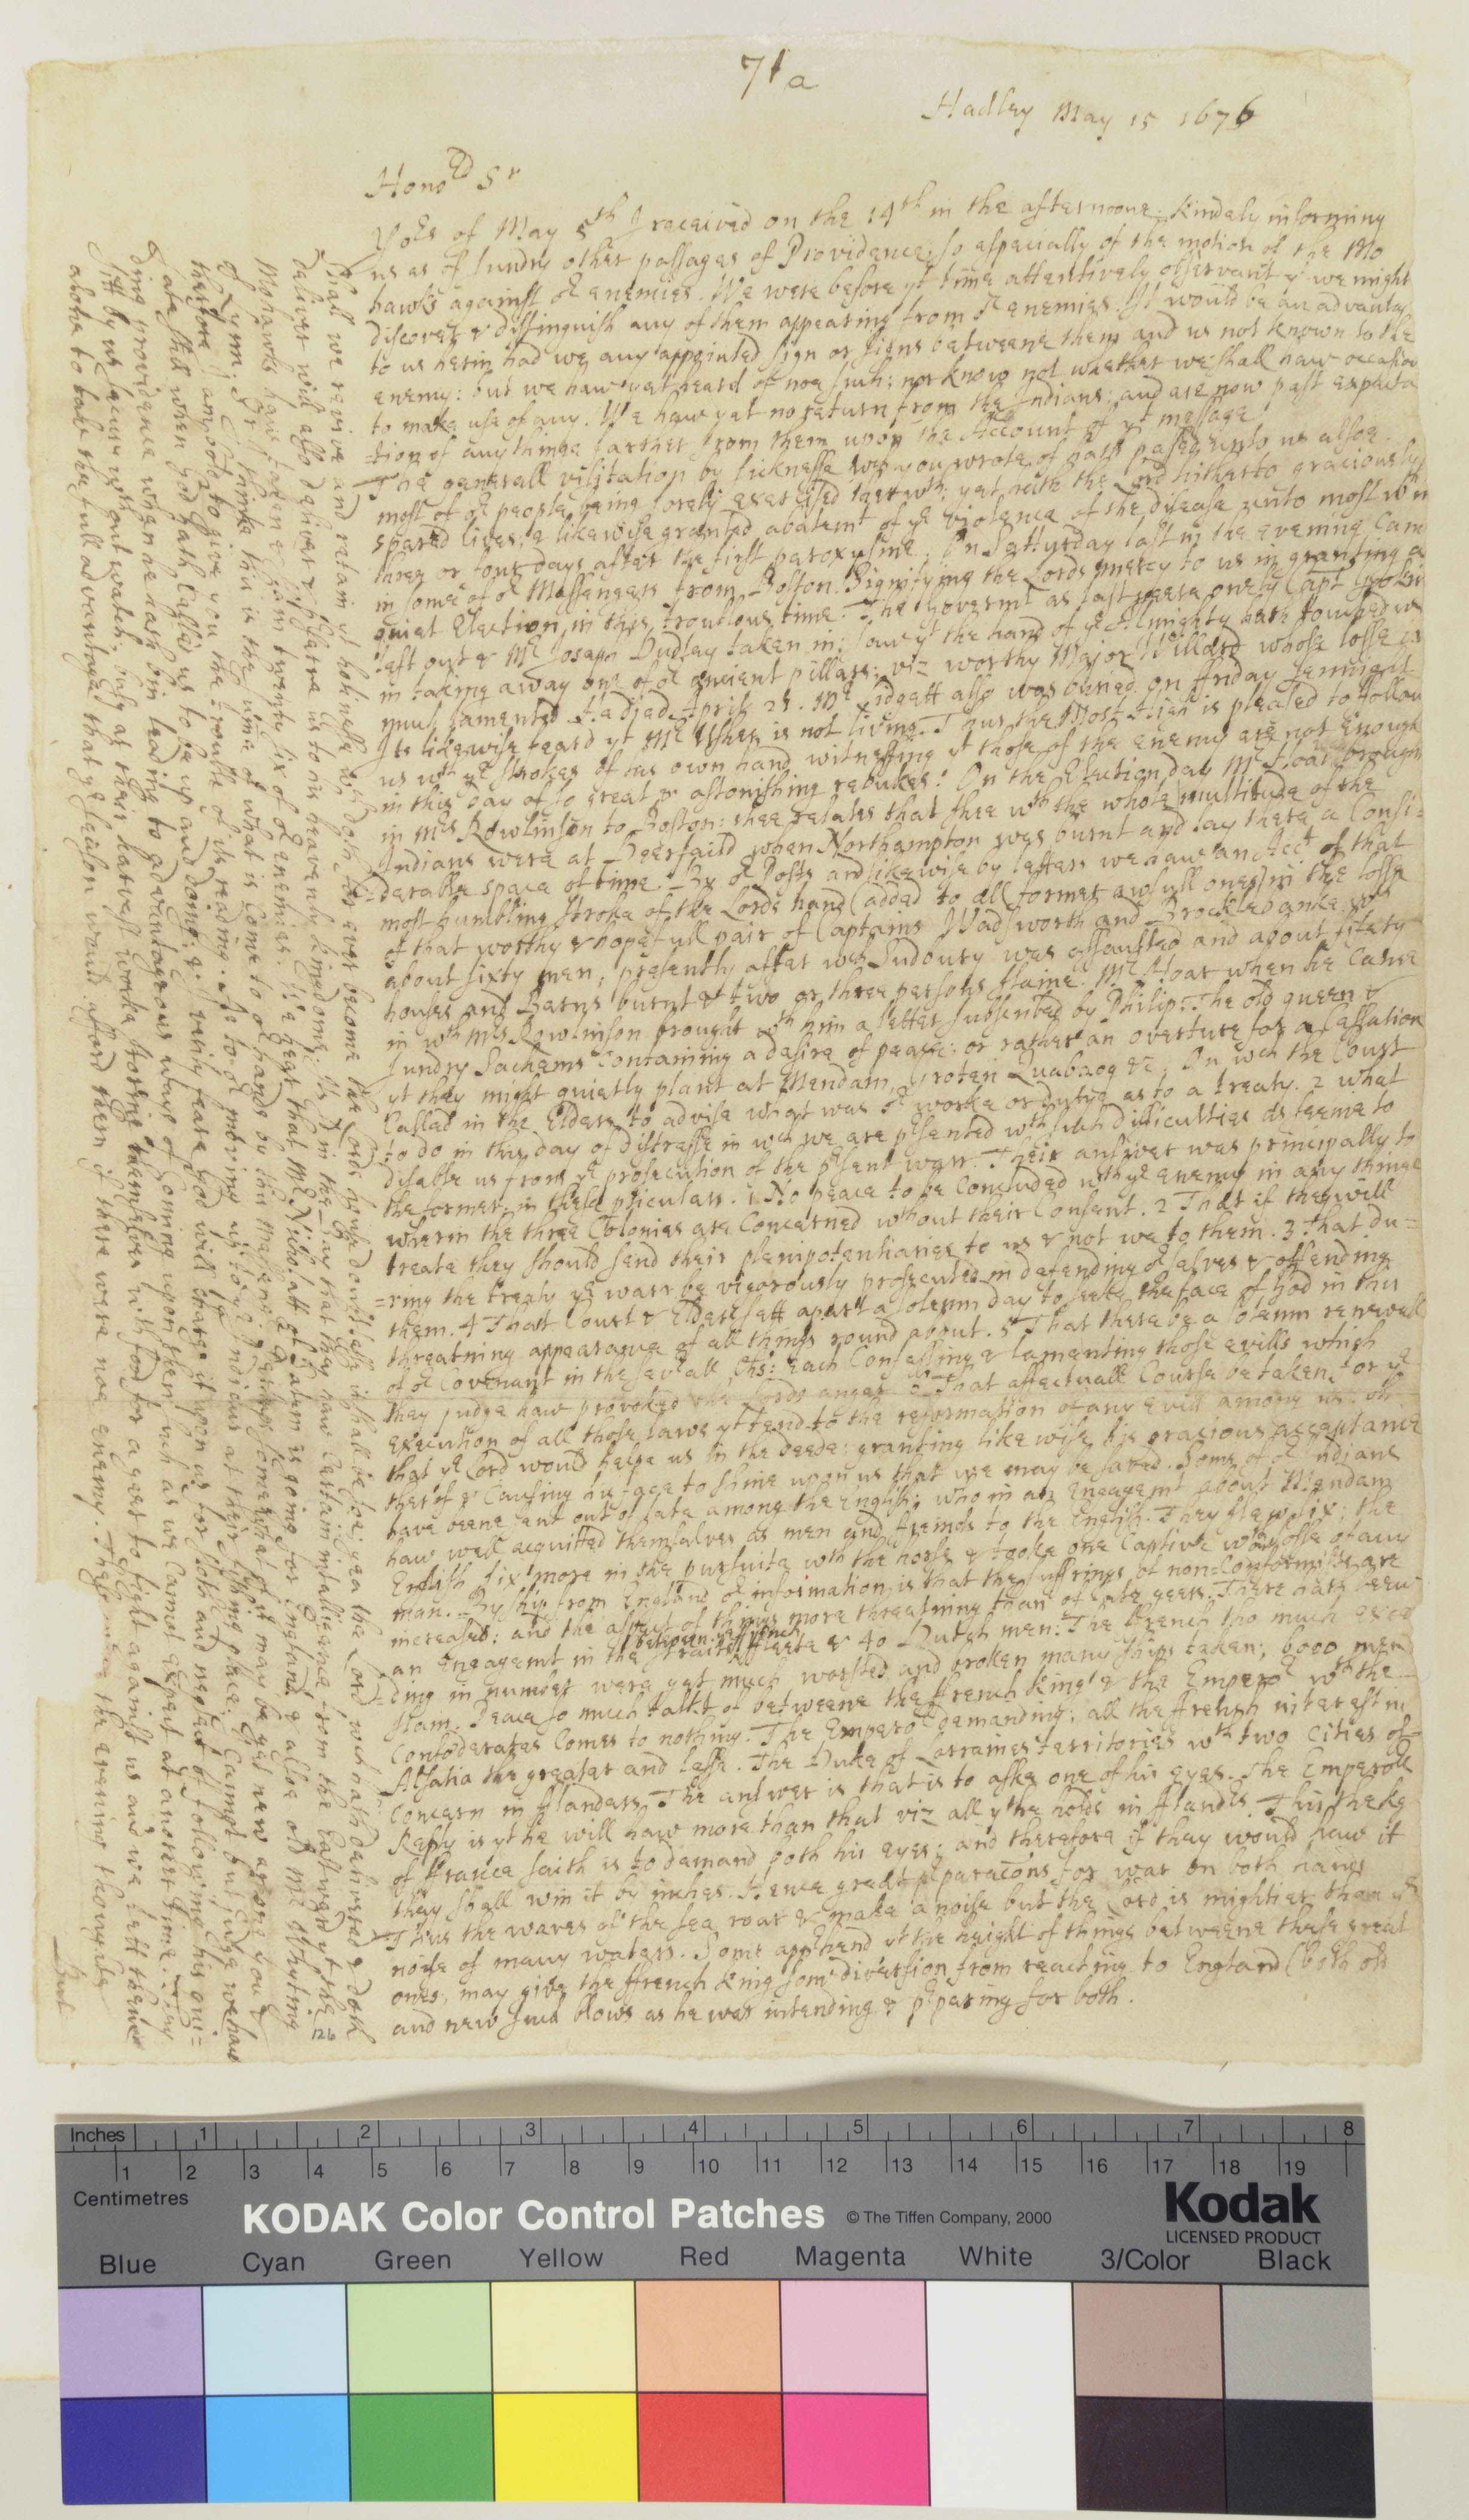 71a
Hadley May 15 1676
Hono.rd Sr
Yors of May 5th I received on the 14th in the afternoone: kindely informing
us as of sundry other passages of Providence; so especially of the motion of the Mo
hawks against or enemies. We were before yt time attentively observant yt we might
discover & distinguish any of them appearing from or enemies. It would be an advantag
to us herin had we any appointed sign or signs betweene them and us not known to the
enemy: but we have yet heard of noe such; nor know not whether we shall have occation
to make use of any. We have yet no return from the Indians; and are now past expecta
tion of any thinge farther from them upon the Account of yt message.
The generall visitation by sicknesse wch you wrote of hath passed unto us alsoe.
most of or people being sorely exercised therwth; yet hath the Lord hitherto graciously
spared lives; & likewise granted abatemt of ye violence of the disease unto most wthin
three or four days after the first paroxysme. On Satturday last in the evening came
in some of or Messengers from Boston. Signifying the Lords mercy to us in granting a
quiet Election in this troublous time. The Govermt as last yeere onely Capt Gookin
left out & Mr Joseph Dudley taken in; save yt the hand of ye Allmighty hath touched us
in taking away one of or ancient pillars; viz worthy Major Willard whose losse is
much lamented. He died April 23. Mr Lidgett also was buried on ffriday sennight
Its likewise feard yt Mr Usher is not living. Thus the Most High is pleased to follow
us wth ye strokes of his own hand witnessing yt those of the enemy are not enough
in this day of so great & astonishing rebukes! On the Election day Mr Hoar brough
in Mrs Rowlinson to Boston: shee relates that shee wth the whole multitude of the
Indians were at Deerfeild when Northampton was burnt and lay there a Consi=
=derable space of time. By or Posts and likewise by letters we have an Acct of that
most humbling stroke of the Lords hand (added to all former awfull ones) in the losse
of that worthy & hopefull pair of Captains Wadsworth and Brocklebanke wth
about sixty men; presently after wch Sudbury was assaulted and about fifety
houses and Barns burnt & two or three persons slaine. Mr Hoar when he Came
in wth Mrs Rowlinson brought wth him a letter subscribed by Philip: The old queen &
sundry Sachems Containing a desire of peace; or rather an overture for a Cessation
yt they might quietly plant at Mendam, Groten Quabaog &c. On wch the Court
Called in the Elders to advise what was or worke or dutye as to a treaty. 2 what
to do in this day of distresse in wch we are prsented wth such dificulties as seeme to
disable us from ye prosecution of the prsent warr. Their answer was principally to
the former in these pticulars. 1 No peace to be Concluded with ye enemy in any thinge
wherin the three Colonies are Concerned wthout their Consent. 2 That if they will
treate they should send their plenipotentiaries to us & not we to them. 3 That du=
=ring the treaty ye warr be vigorously prosecuted in defending orselves & offending
them. 4 That Court & Elders sett apart a solemn day to seeke the face of God in this
threatning appearance of all things round about. 5 That there be a solemn renewall
of or Covenant in the severall Chs: each Confessing & lamenting those evills which
they judge have provoked the Lords anger 6 That effectuall Course be taken for ye
execution of all those laws yt tend to the reformation of any evill among us. oh
that ye Lord would helpe us in the deede: granting like wise his gracious acceptance
therof & Causing his face to shine upon us that we may be saved. Some of or Indians
have beene sent out of late among the English; who in an Engagemt about Mendam
have well acquitted themselves as men and freinds to the English. They slew six; the
English six more in the pursuite wth the horse & tooke one Captive wthout losse of any
man. By ship from England or information is that the suffrings of non=Conformists are
increased; and the aspect of things more threatning than of late years. There hath been
an Engagemt in the straits between ye ffrench fleete & 40 Dutch men: The ffrench tho much excee
=ding in number were yet much worsted and broken many ships taken; 6000 men
slain. Peace so much talk't of betweene the ffrench King & the Emperor wth the
Confederates Comes to nothing. The Emperor demanding; all the ffrench interest in
Alsatia the greater and lesse. The Duke of Lorraines territories wth two Cities of
Concern in fflanders. The answer is that is to aske one of his eyes. The Emperors
Reply is yt he will have more than that viz all yt he holds in fflandrs. This the Kg
of ffrance saith is to demand both his eyes; and therefore if they would have it
they shall win it by inches. Hence great prparacons for war on both hands
Thus the waves of the sea roar & make a noise but the Lord is mightier than ye
noise of many waters. Some apprhend yt the height of things betweene these great
ones, may give the ffrench King some diversion from reaching to England (both old
and new such blows as he was intending & prparing for both.
shall we revive and retain yt holinesse wch doth for ever become the Lords house doubtless it shall be soe; yea the Lord, wch hath delivered & doth
deliver will also deliver & preserve us to his heavenly kingdome.
Mohawks have taken & slain twenty six of or enemies. We hear that Mr Nicholatt of Salem is going for England & allso old Mr Whyting
of Lynn. Sr I thinke this is the sume of what is Come to or hands by this messenger
therfore
ding providence when he hath bin leading to advantageous ways of Coming upon them; such as we Cannot expect at another time.
sitt by us secure wth out watch, busy at their harvest worke storing themselves with food for a yeer to fight against us and we lett them
alone to take the full advantage that ye season would afford them if there were noe enemy.
126
But
Inches 1 2 3 4 5 6 7 8
1 2 3 4 5 6 7 8 9 10 11 12 13 14 15 16 17 18 19
Centimetres
KODAK Color Control Patches © The Tiffen Company, 2000
Kodak
LICENSED PRODUCT
Blue Cyan Green Yellow Red Magenta White 3/Color Black